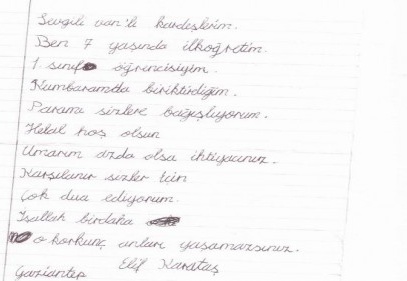 Sevgili van'lı kardeşlerim.
Ben 7 yaşında ilköğretim.
1 sınıf öğrencisiyim.
Kumbaramda biriktirdiğim.
Paramı sizlere bağışlıyorum.
Helal hoş olsun
Umarım azda olsa ihtiyacınız.
Karşılanır sizler için
Çok dua ediyorum.
İsallah birdaha
o korkunç anları yaşamazsınız.
Elif Karataş
Gaziantep